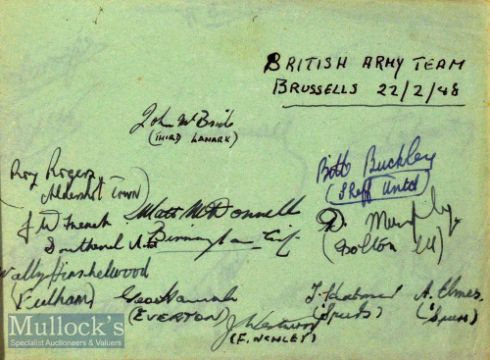 BRITISH ARMY TEAM
BRUSSELLS 22/2/48
John McBride
(THIRD LANARK)
Roy Rogers
Aldershot Town)
Bob Buckley
(Sheff Untd)
J W French
Southend Utd
Matt McDonnell
Birmingham City
D. Murphy
(Bolton
Wally Hinshelwood
(Fulham)
Geo Hannah
(EVERTON)
J
(Spurs)
A.
(Spurs)
J
(F.
Mullock's
Specialist Auctioneers & Valuers